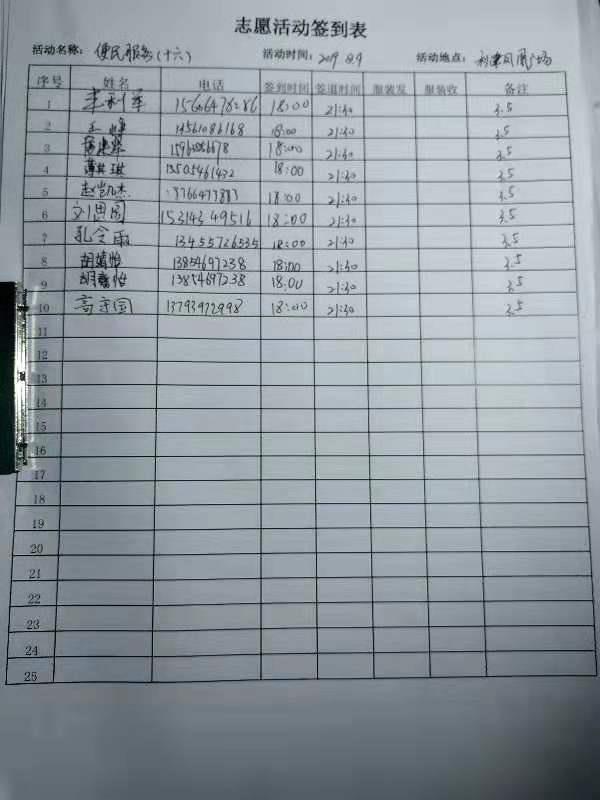 志愿活动签到表
活动名称: 便民服务(十六) 活动时间: 2019 8.9 活动地点: 利津凤凰广场
序号 姓名 电话 签到时间 签退时间 服装发 服装收 备注
1 18:00 21:30 3.5
2 王峰 18:00 21:30 3.5
3 18:00 21:30 3.5
4 13505461432 18:00 21:30 3.5
5 赵凯杰 18:00 21:30 3.5
6 刘思国 15314349516 18:00 21:30 3.5
7 孔令雨 13455726535 18:00 21:30 3.5
8 胡嘉怡 13854697238 18:00 21:30 3.5
9 胡嘉怡 13854697238 18:00 21:30 3.5
10 高守国 13793972998 18:00 21:30 3.5
11
12
13
14
15
16
17
18
19
20
21
22
23
24
25